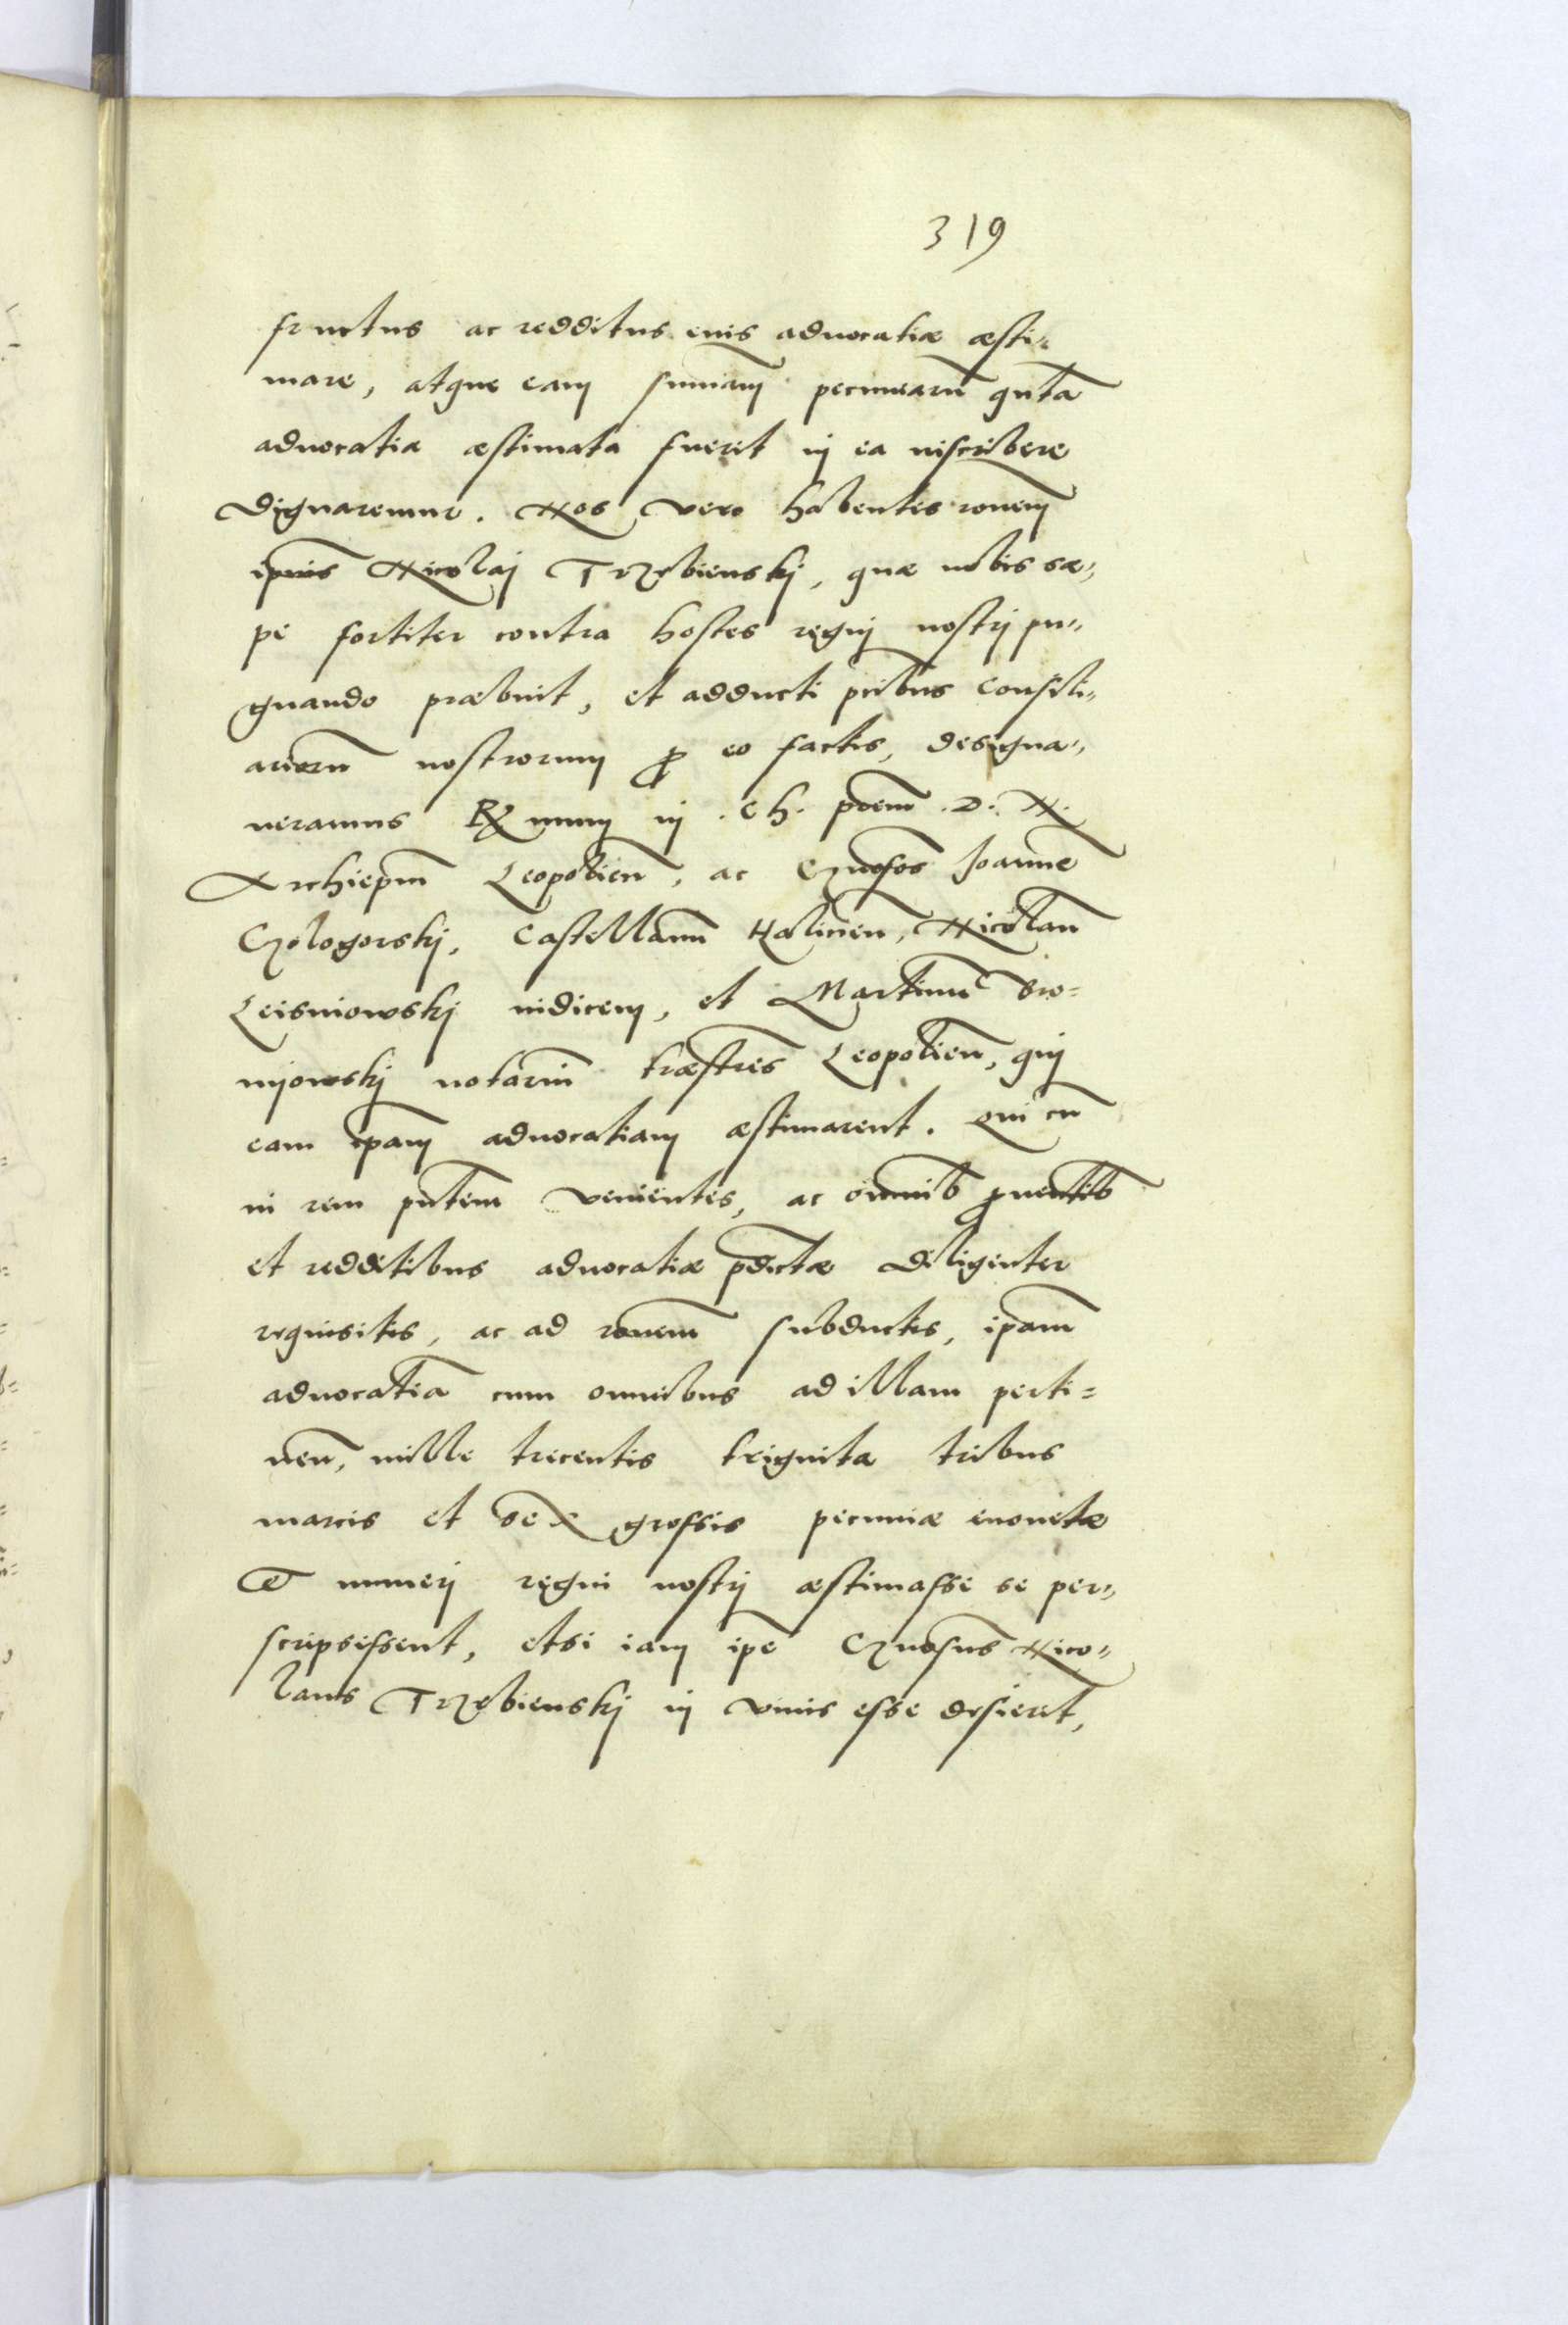 319
fructus ac redditus eius advocatiæ æsti„
mare, atque eam summam pecuniarũ qñta
advocatia æstimata fuerit in ea inscribere
dignaremur. Nos vero habentes ronem
ipsius Nicolaj Trzebienskj, quæ nobis sæ„
pe fortiter contra hostes regnj nostrj pu„
gnando præbuit, et adducti pcibus consili„
ariorũ nostrorum ꝓ eo factis, designa„
veramus Rx mum in . Ch. prem .D. N.
Archiepm Leopolien, ac Gnosos Joanne
Czologorskj, Castellanũ Halicien, Nicolaũ
Leisniowskj iudicem, et Martinũ Bro=
nijowskj notariũ træstres Leopolien, qui
eam ipam advocatiam æstimarent. Qui cũ
in rem pñtem venientes, ac omnib ꝓventib
et redditibus advocatiæ pdictæ diligenter
requisitis, ac ad ronem subductis, ipam
advocatiã cum omnibus ad illam perti=
nen, mille trecentis triginta tribus
marcis et sex grossis pecuniæ monetæ
et numerj regni nostrj æstimasse se per„
scripsissent, etsi iam ipe Gnosus Nico„
laus Trzebienskj in vivis esse desierit,